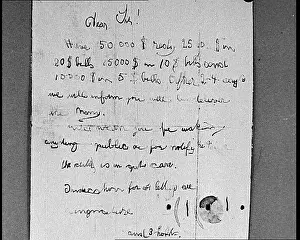 Dear Sir!
Have 50 000 $ redy 25 000 $ in
20 $ bills 15000 $ in 10 $ bills and
10000 $ in 5 $ bills After 2-4 days
we will inform you were to deliver
the Mony.
We warn you for making
anyding public or for notify the
the child is in gute care.
Indication for all letters are
singnature
and 3 holes.